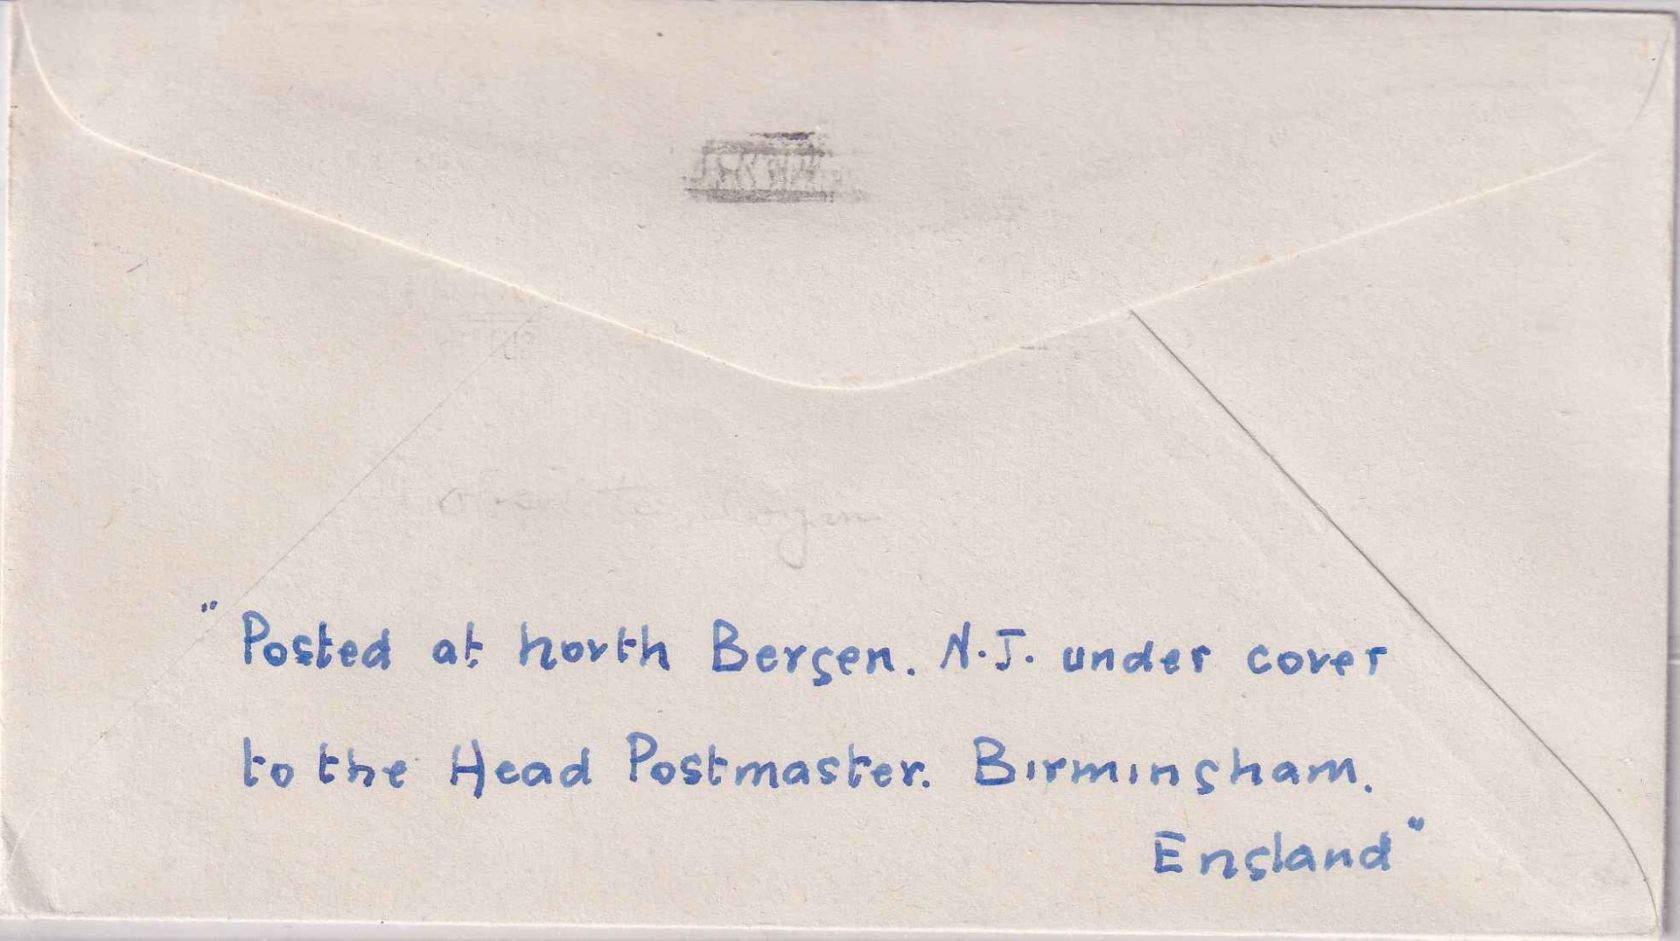 "Posted at north Bergen. N.J. under cover
to the Head Postmaster. Birmingham.
England"